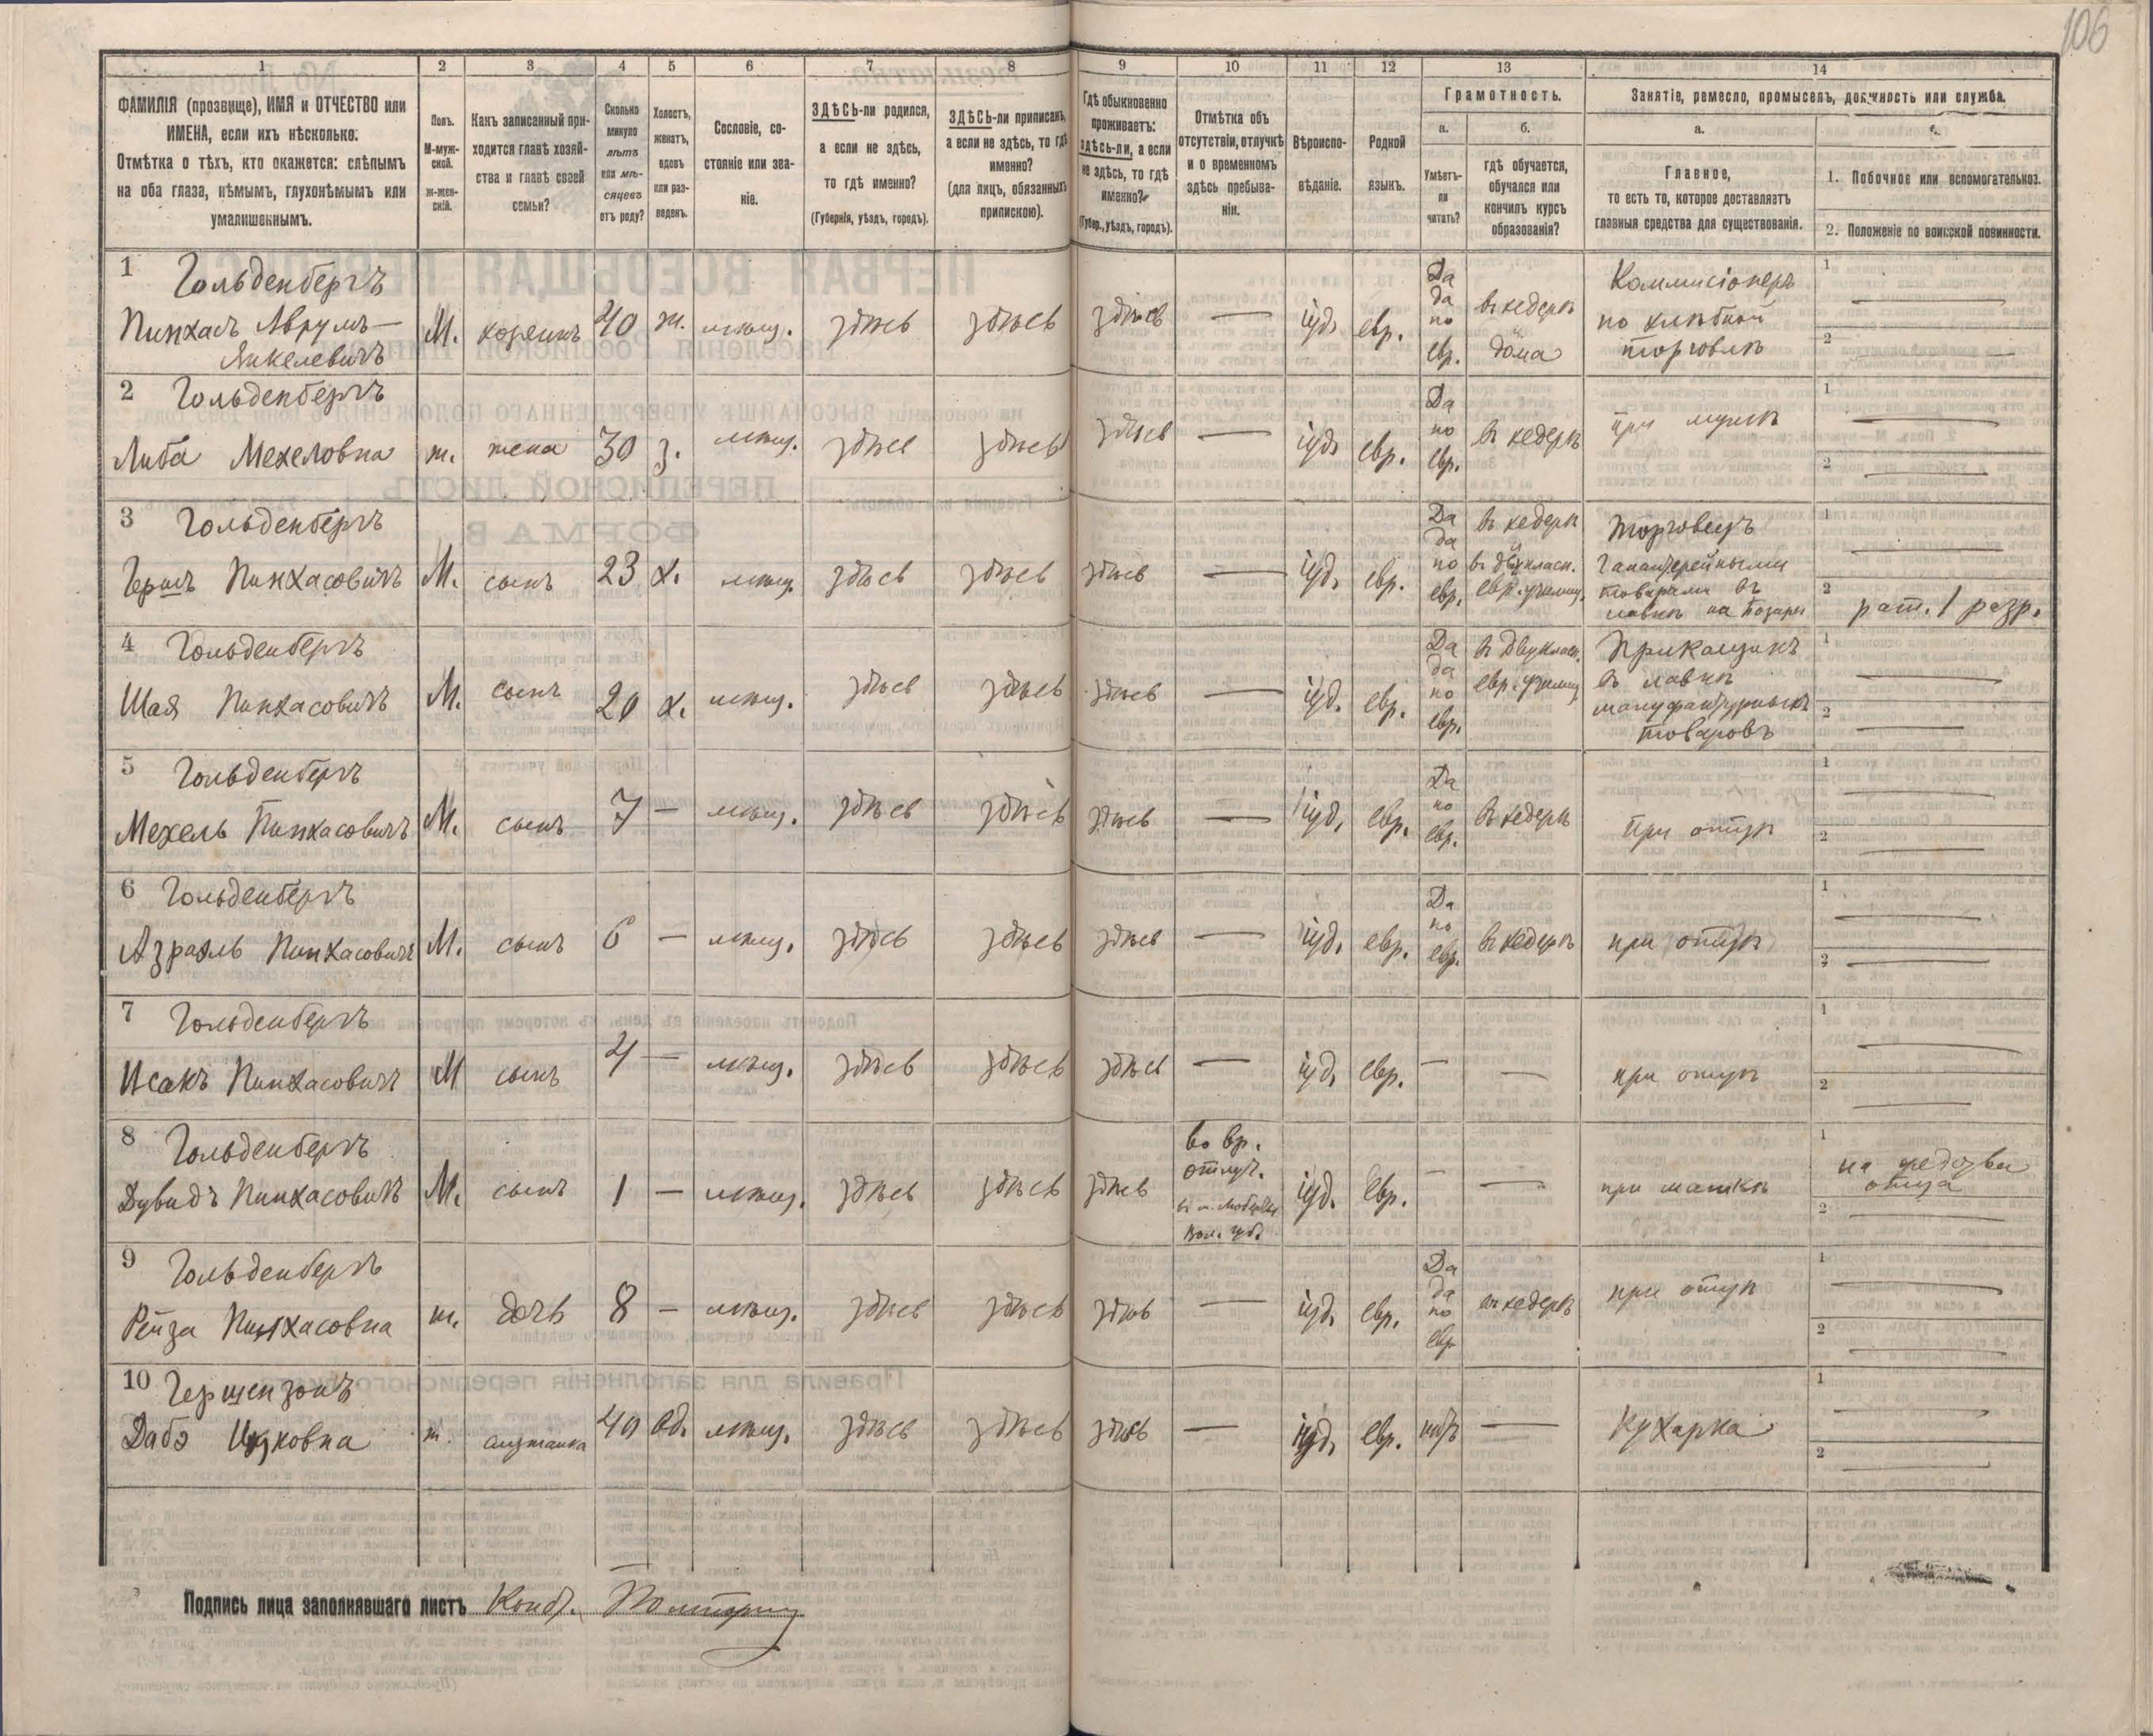 106
1 2 3 4 5 6 7 8 9 10 11 12 13 14
ФАМИЛІЯ (прозвище), ИМЯ и ОТЧЕСТВО или
ИМЕНА, если ихъ нѣсколько.
Отмѣтка о тѣхъ, кто окажется: слѣпымъ
на оба глаза, нѣмымъ, глухонѣмымъ или
умалишеннымъ.
Полъ.
М-муж-
ской.
ж-жен-
скій.
Какъ записанный при-
ходится главѣ хозяй-
ства и главѣ своей
семьи?
Сколько
минуло
лѣтъ
или мѣ-
сяцевъ
отъ роду?
Холостъ,
женатъ,
вдовъ
или раз-
веденъ.
Сословіе, со-
стояніе или зва-
ніе.
ЗДѢСЬ-ли родился,
а если не здѣсь,
то гдѣ именно?
(Губернія, уѣздъ, городъ).
ЗДѢСЬ-ли приписанъ,
а если не здѣсь, то гдѣ
именно?
(для лицъ, обязанныхъ
припискою).
Гдѣ обыкновенно
проживаетъ:
здѣсь-ли, а если
не здѣсь, то гдѣ
именно?
(Губер., уѣздъ, городъ).
Отмѣтка объ
отсутствіи, отлучкѣ
и о временномъ
здѣсь пребыва-
ніи.
Вѣроиспо-
вѣданіе.
Родной
языкъ.
Грамотность.
а. б.
Умѣетъ-
ли
читать?
гдѣ обучается,
обучался или
кончилъ курсъ
образованія?
Занятіе, ремесло, промыселъ, должность или служба.
а.
Главное,
то есть то, которое доставляетъ
главныя средства для существованія.
1. Побочное или вспомогательное.
2. Положеніе по воинской повинности.
1 Гольденбергъ
Пинхасъ Аврумъ—
Янкелевичъ
М. хозяинъ 40 ж. мѣщ. здѣсь здѣсь здѣсь — іуд. евр.
Да
да
по
евр.
въ хедерѣ
и
дома
Коммисіонеръ
по хлѣбной
торговлѣ
1 —
2 —
2 Гольденбергъ
Либа Мехеловна ж. жена 30 з. мѣщ. здѣсь здѣсь здѣсь — іуд. евр.
Да
по
евр.
въ хедерѣ
при мужѣ
1 —
2 —
3 Гольденбергъ
Гершъ Пинхасовичъ М. сынъ 23 х. мѣщ. здѣсь здѣсь здѣсь — іуд. евр.
Да
да
по
евр.
въ хедерѣ
и
въ двукласн.
евр. училищ.
Торговецъ
галантерейными
товарами въ
лавкѣ на базарѣ
1 —
2 рат. 1 разр.
4 Гольденбергъ
Шая Пинхасовичъ М. сынъ 20 х. мѣщ. здѣсь здѣсь здѣсь — іуд. евр.
Да
да
по
евр.
въ двуклас.
евр. училищ
Прикащикъ
въ лавкѣ
мануфактурныхъ
товаровъ
1 —
2 —
5 Гольденбергъ
Мехель Пинхасовичъ М. сынъ 7 — мѣщ. здѣсь здѣсь здѣсь — іуд. евр.
Да
по
евр.
въ хедерѣ
при отцѣ
1 —
2 —
6 Гольденбергъ
Азраэль Пинхасовичъ М. сынъ 6 — мѣщ. здѣсь здѣсь здѣсь — іуд. евр.
Да
по
евр.
въ хедерѣ
при отцѣ
1 —
2 —
7 Гольденбергъ
Исакъ Пинхасовичъ М сынъ 4 — мѣщ. здѣсь здѣсь здѣсь — іуд. евр. — —
при отцѣ
1 —
2 —
8 Гольденбергъ
Дувидъ Пинхасовичъ М. сынъ 1 — мѣщ. здѣсь здѣсь здѣсь
во вр.
отлуч.
губ.
іуд. евр. — —
при мамкѣ
1 на
отца
2 —
9 Гольденбергъ
Рейза Пинхасовна ж. дочь 8 — мѣщ. здѣсь здѣсь здѣсь — іуд. евр.
Да
да
по
евр
въ хедерѣ
при отцѣ
1 —
2 —
10 Гершензонъ
Дабэ Ицковна ж. служанка 40 вд. мѣщ. здѣсь здѣсь здѣсь — іуд. евр. нѣтъ —
Кухарка
1 —
2 —
Подпись лица заполнявшаго листъ